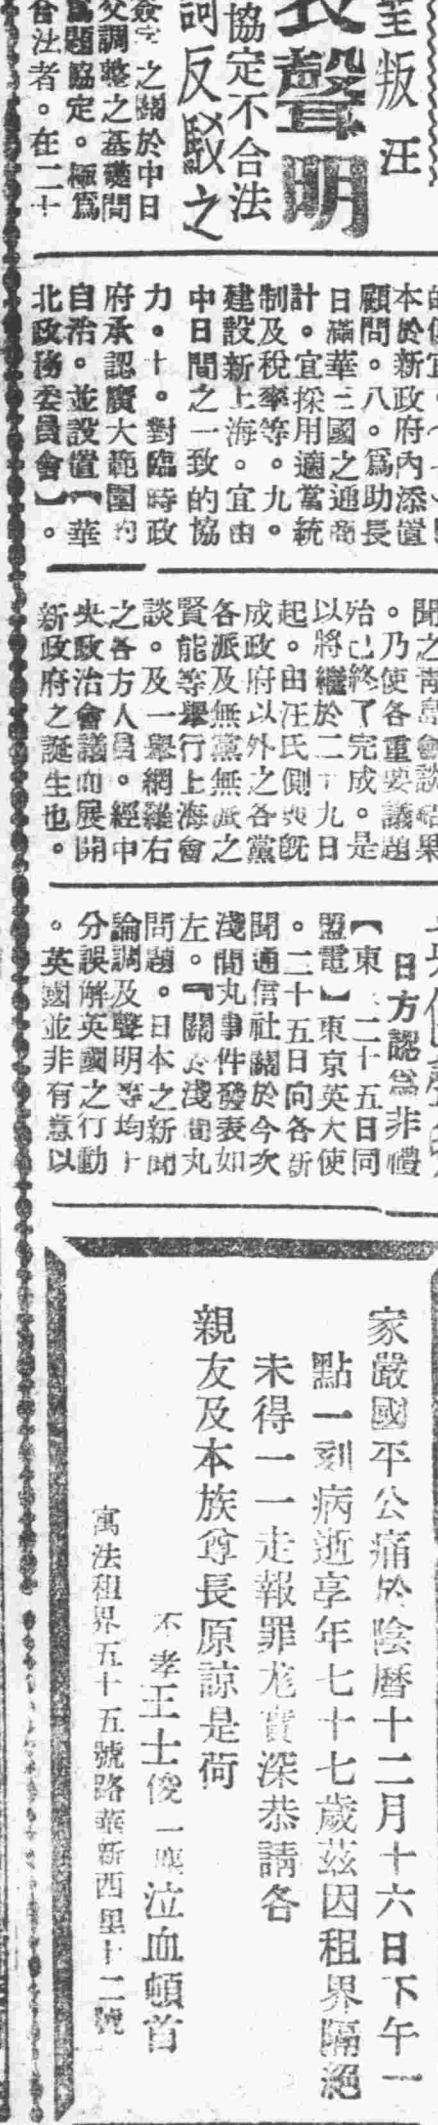 至叛汪
表聲明
協定不合法
訶反駁之
簽字之關於中日
交調整之基礎問
題協定。極爲
合法者。在二十
本於新政府內添置
顧問。八。爲助長
日滿華三國之通商
計。宜採用適當統
制及稅率等。九。
建設新上海。宜由
中日間之一致的協
力。十。對臨時政
府承認廣大範圍的
自治。並設置【華
北政務委員會】。
聞之青島會談結果
。乃使各重要議題
殆已終了完成。是
以將繼於二十九日
起。由汪氏側與既
成政府以外之各黨
各派及無黨無派之
賢能等舉行上海會
談。及一舉網羅右
之各方人員。經中
央政治會議而展開
新政府之誕生也。
日方認爲非禮
【東 二十五日同
盟電】東京英大使
。二十五日向各新
聞通信社關於今次
淺間丸事件發表如
左。『關於淺間丸
問題。日本之新聞
論調及聲明等均十
分誤解英國之行動
。英國並非有意以
家嚴國平公痛於陰曆十二月十六日下午一
點一刻病逝享年七十七歲茲因租界隔絕
未得一一走報罪尤實深恭請各
親友及本族尊長原諒是荷
不孝王士俊 泣血頓首
寓法租界五十五號路華新西里十二號